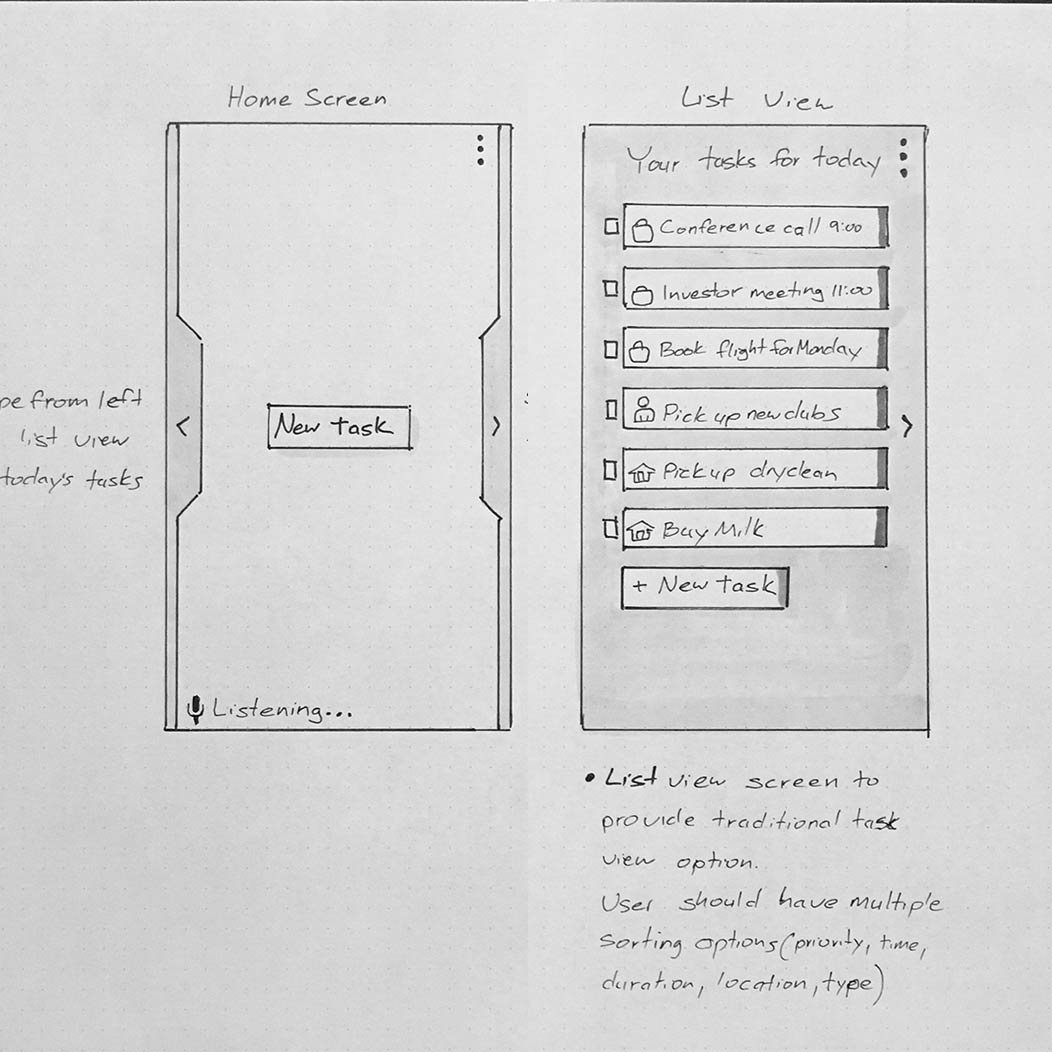 Home Screen
New task
Listening...
from left
list view
today's tasks
List View
Your tasks for today
Conference call 9:00
Investor meeting 11:00
Book flight for Monday
Pick up new clubs
Pick up dryclean
Buy Milk
+ New task
• List view screen to
provide traditional task
view option.
User should have multiple
sorting options (priority, time,
duration, location, type)